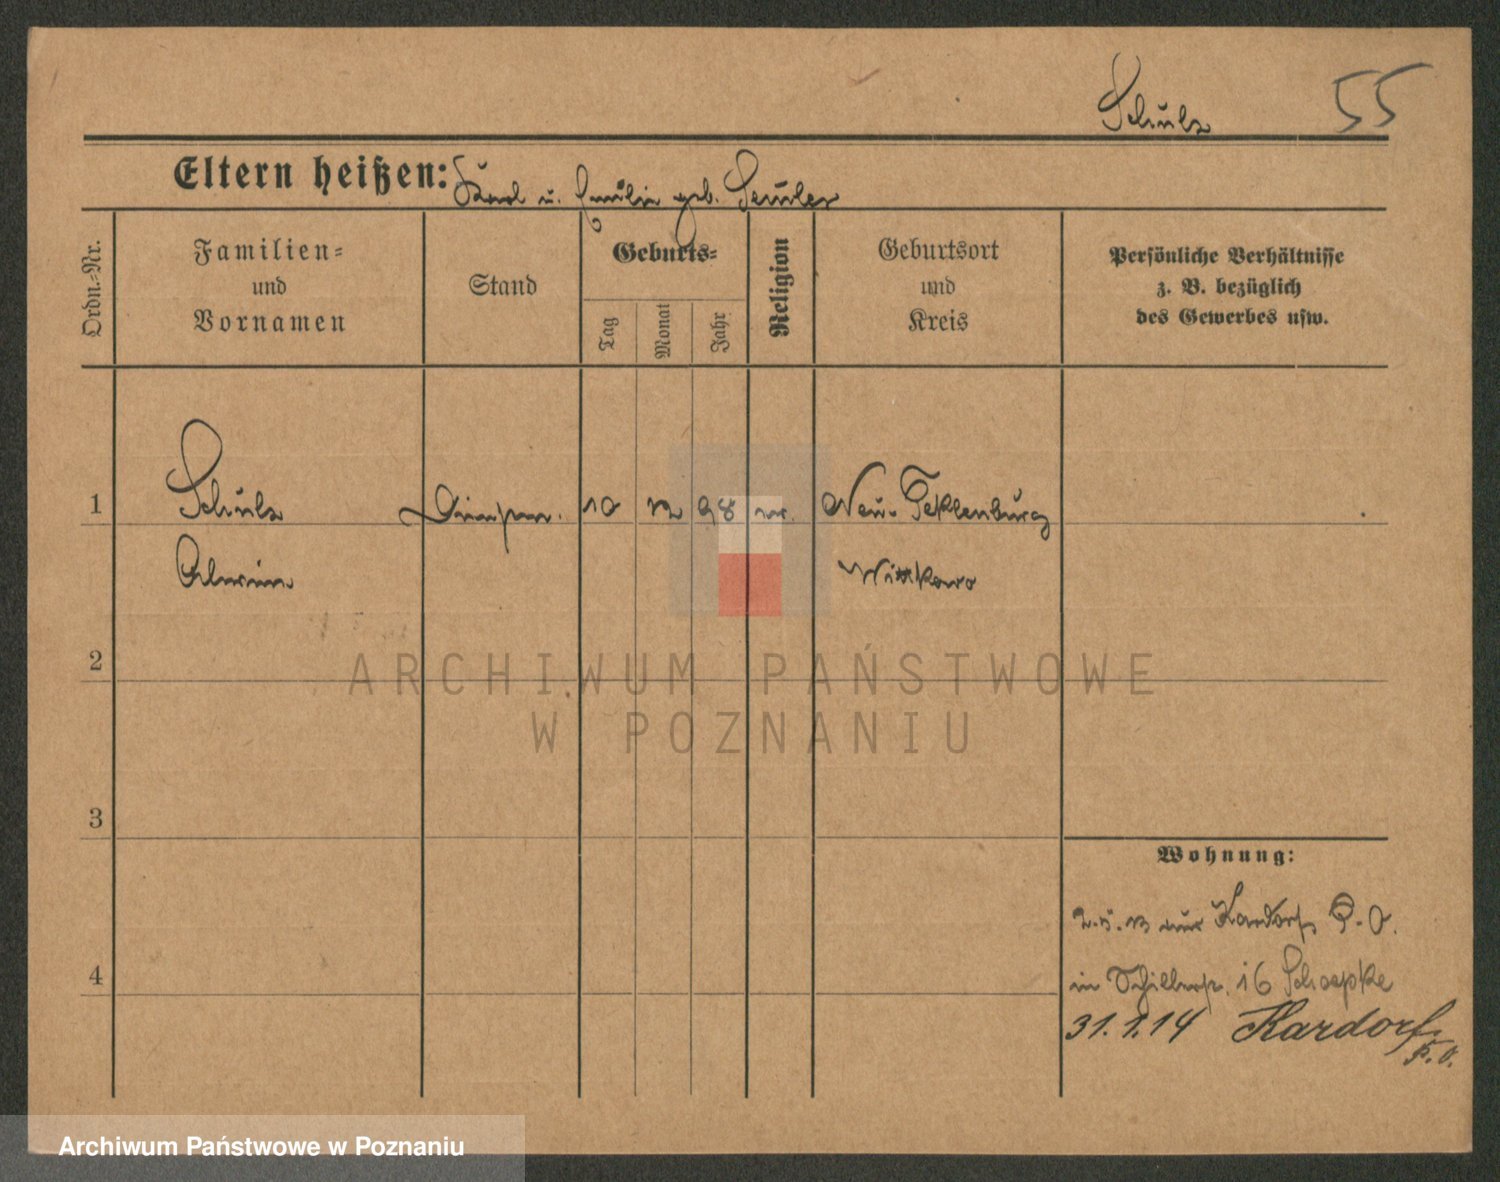 Schulz 55
Eltern heißen: Karl u. Emilie geb. Semler
Ordn.-Nr.
Familien-
und
Vornamen
Stand
Geburts-
Tag
Monat
Jahr
Religion
Geburtsort
und
Kreis
Persönliche Verhältnisse
z. B. bezüglich
des Gewerbes usw.
1 Schulz 10 12 98 Neu-Tecklenburg
Alwin Wittkowo
2
ARCHIWUM PAŃSTWOWE
W POZNANIU
3
Wohnung:
aus Kardorf P. O.
in Schillerstr. 16 Schoepke
4
31.1.14 Kardorf
P. O.
Archiwum Państwowe w Poznaniu